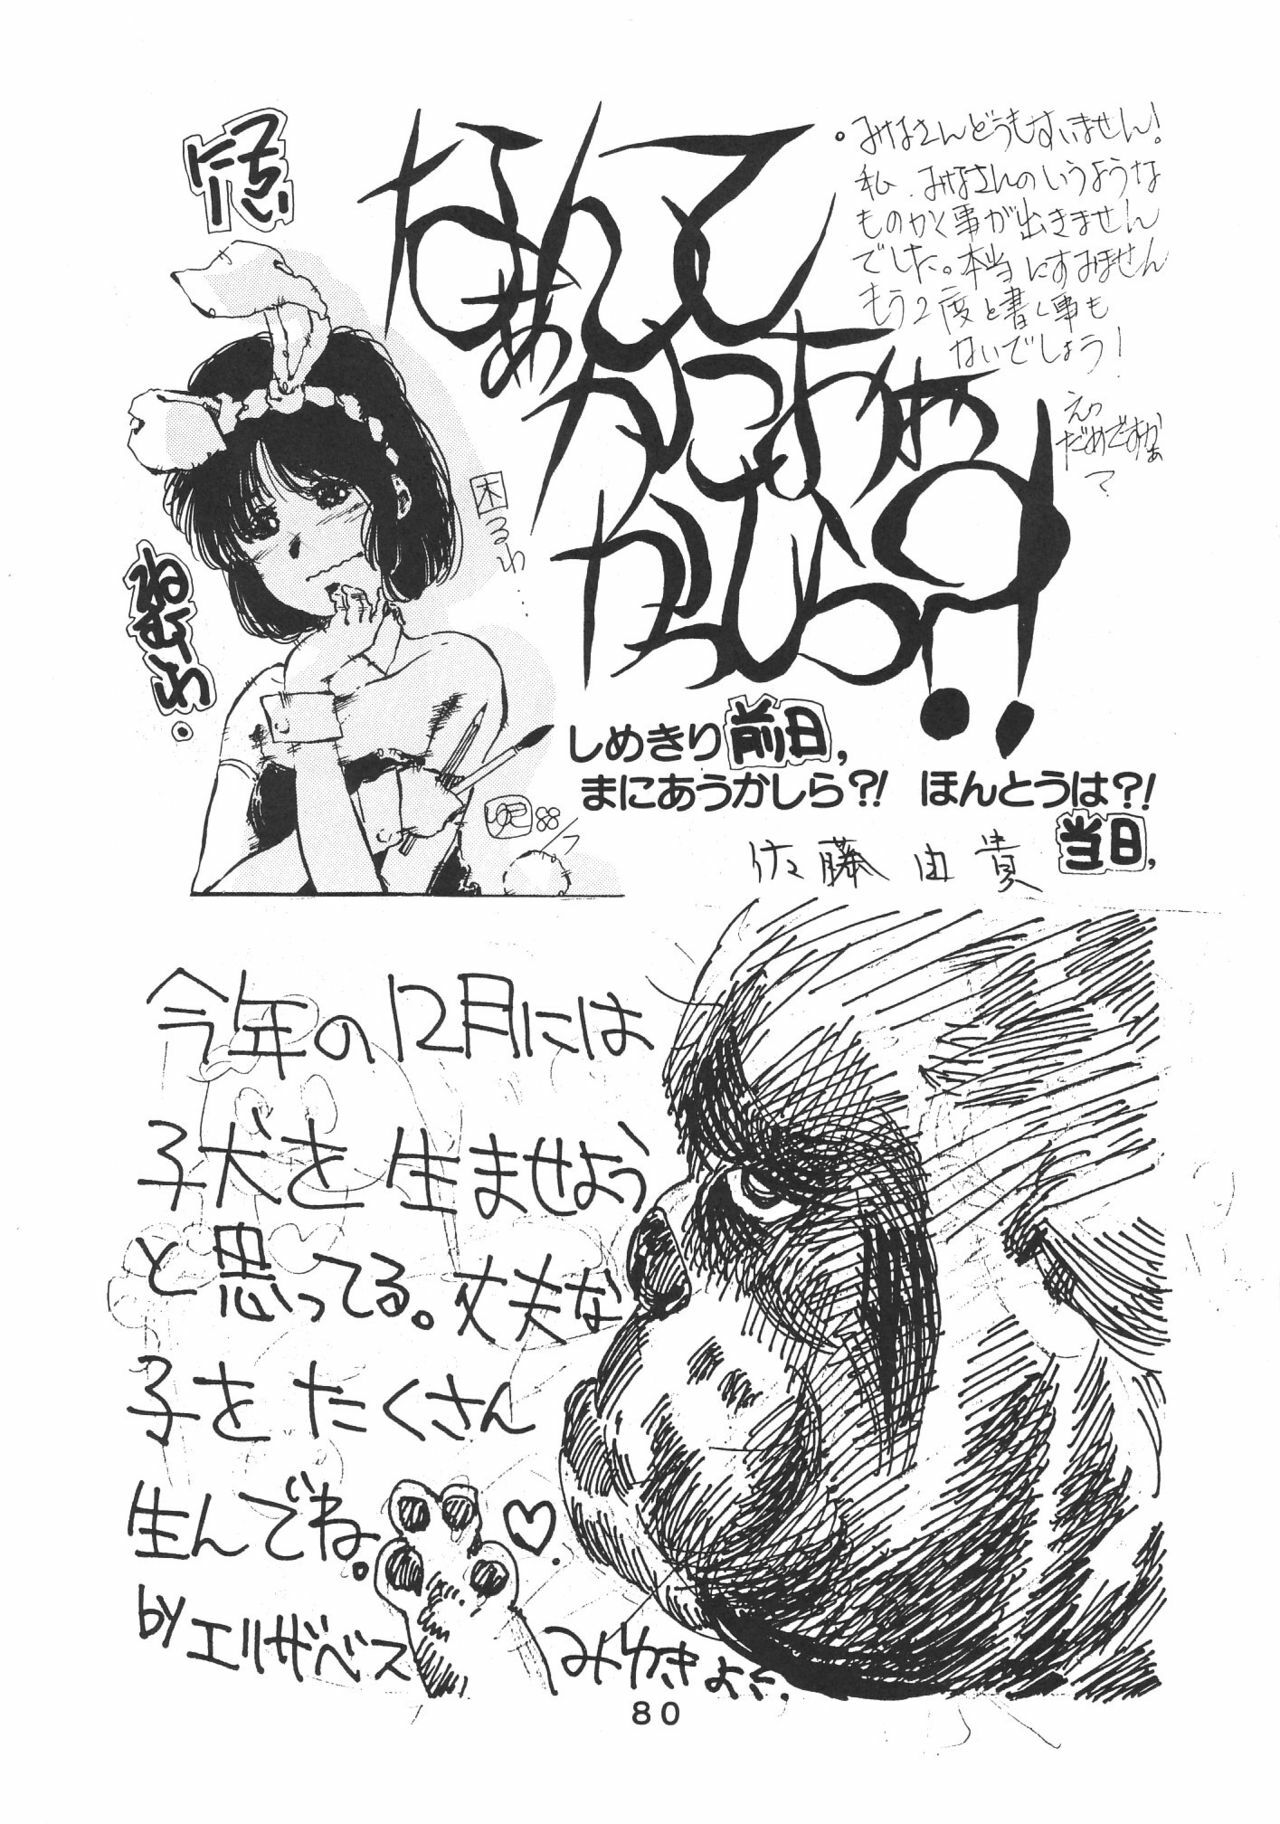 なぁんて
かこちゃぁ
かしら?!
みなさんどうもすいません!
私、みなさんのいうような
ものかく事が出きません
でした。本当にすみません
もう2度と書く事も
ないでしょう!
えっ
だめですかぁ
?
困るわ…
ねむい。
しめきり前日,
まにあうかしら?! ほんとうは?!
当日,
佐藤由貴
ゆき 88
今年の12月には
子犬を生ませよう
と思ってる。丈夫な
子をたくさん
生んでね。♡
by エルザベス
みゆきょり.
80